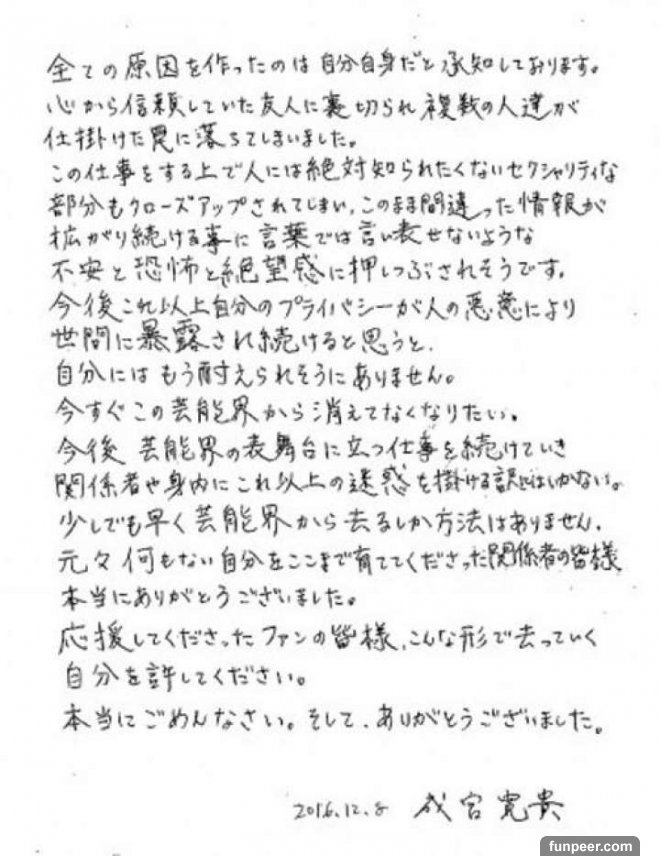 全ての原因を作ったのは自分自身だと承知しております。
心から信頼していた友人に裏切られ複数の人達が
仕掛けた罠に落ちてしまいました。
この仕事をする上で人には絶対知られたくないセクシャリティな
部分もクローズアップされてしまい、このまま間違った情報が
拡がり続ける事に言葉では言い表せないような
不安と恐怖と絶望感に押しつぶされそうです。
今後これ以上自分のプライバシーが人の悪意により
世間に暴露され続けると思うと、
自分にはもう耐えられそうにありません。
今すぐこの芸能界から消えてなくなりたい。
今後芸能界の表舞台に立つ仕事を続けていき
関係者や身内にこれ以上の迷惑を掛ける訳にはいかない。
少しでも早く芸能界から去るしか方法はありません。
元々何もない自分をここまで育ててくださった関係者の皆様
本当にありがとうございました。
応援してくださったファンの皆様、こんな形で去っていく
自分を許してください。
本当にごめんなさい。そして、ありがとうございました。
2016.12.8 成宮寛貴
funpeer.com